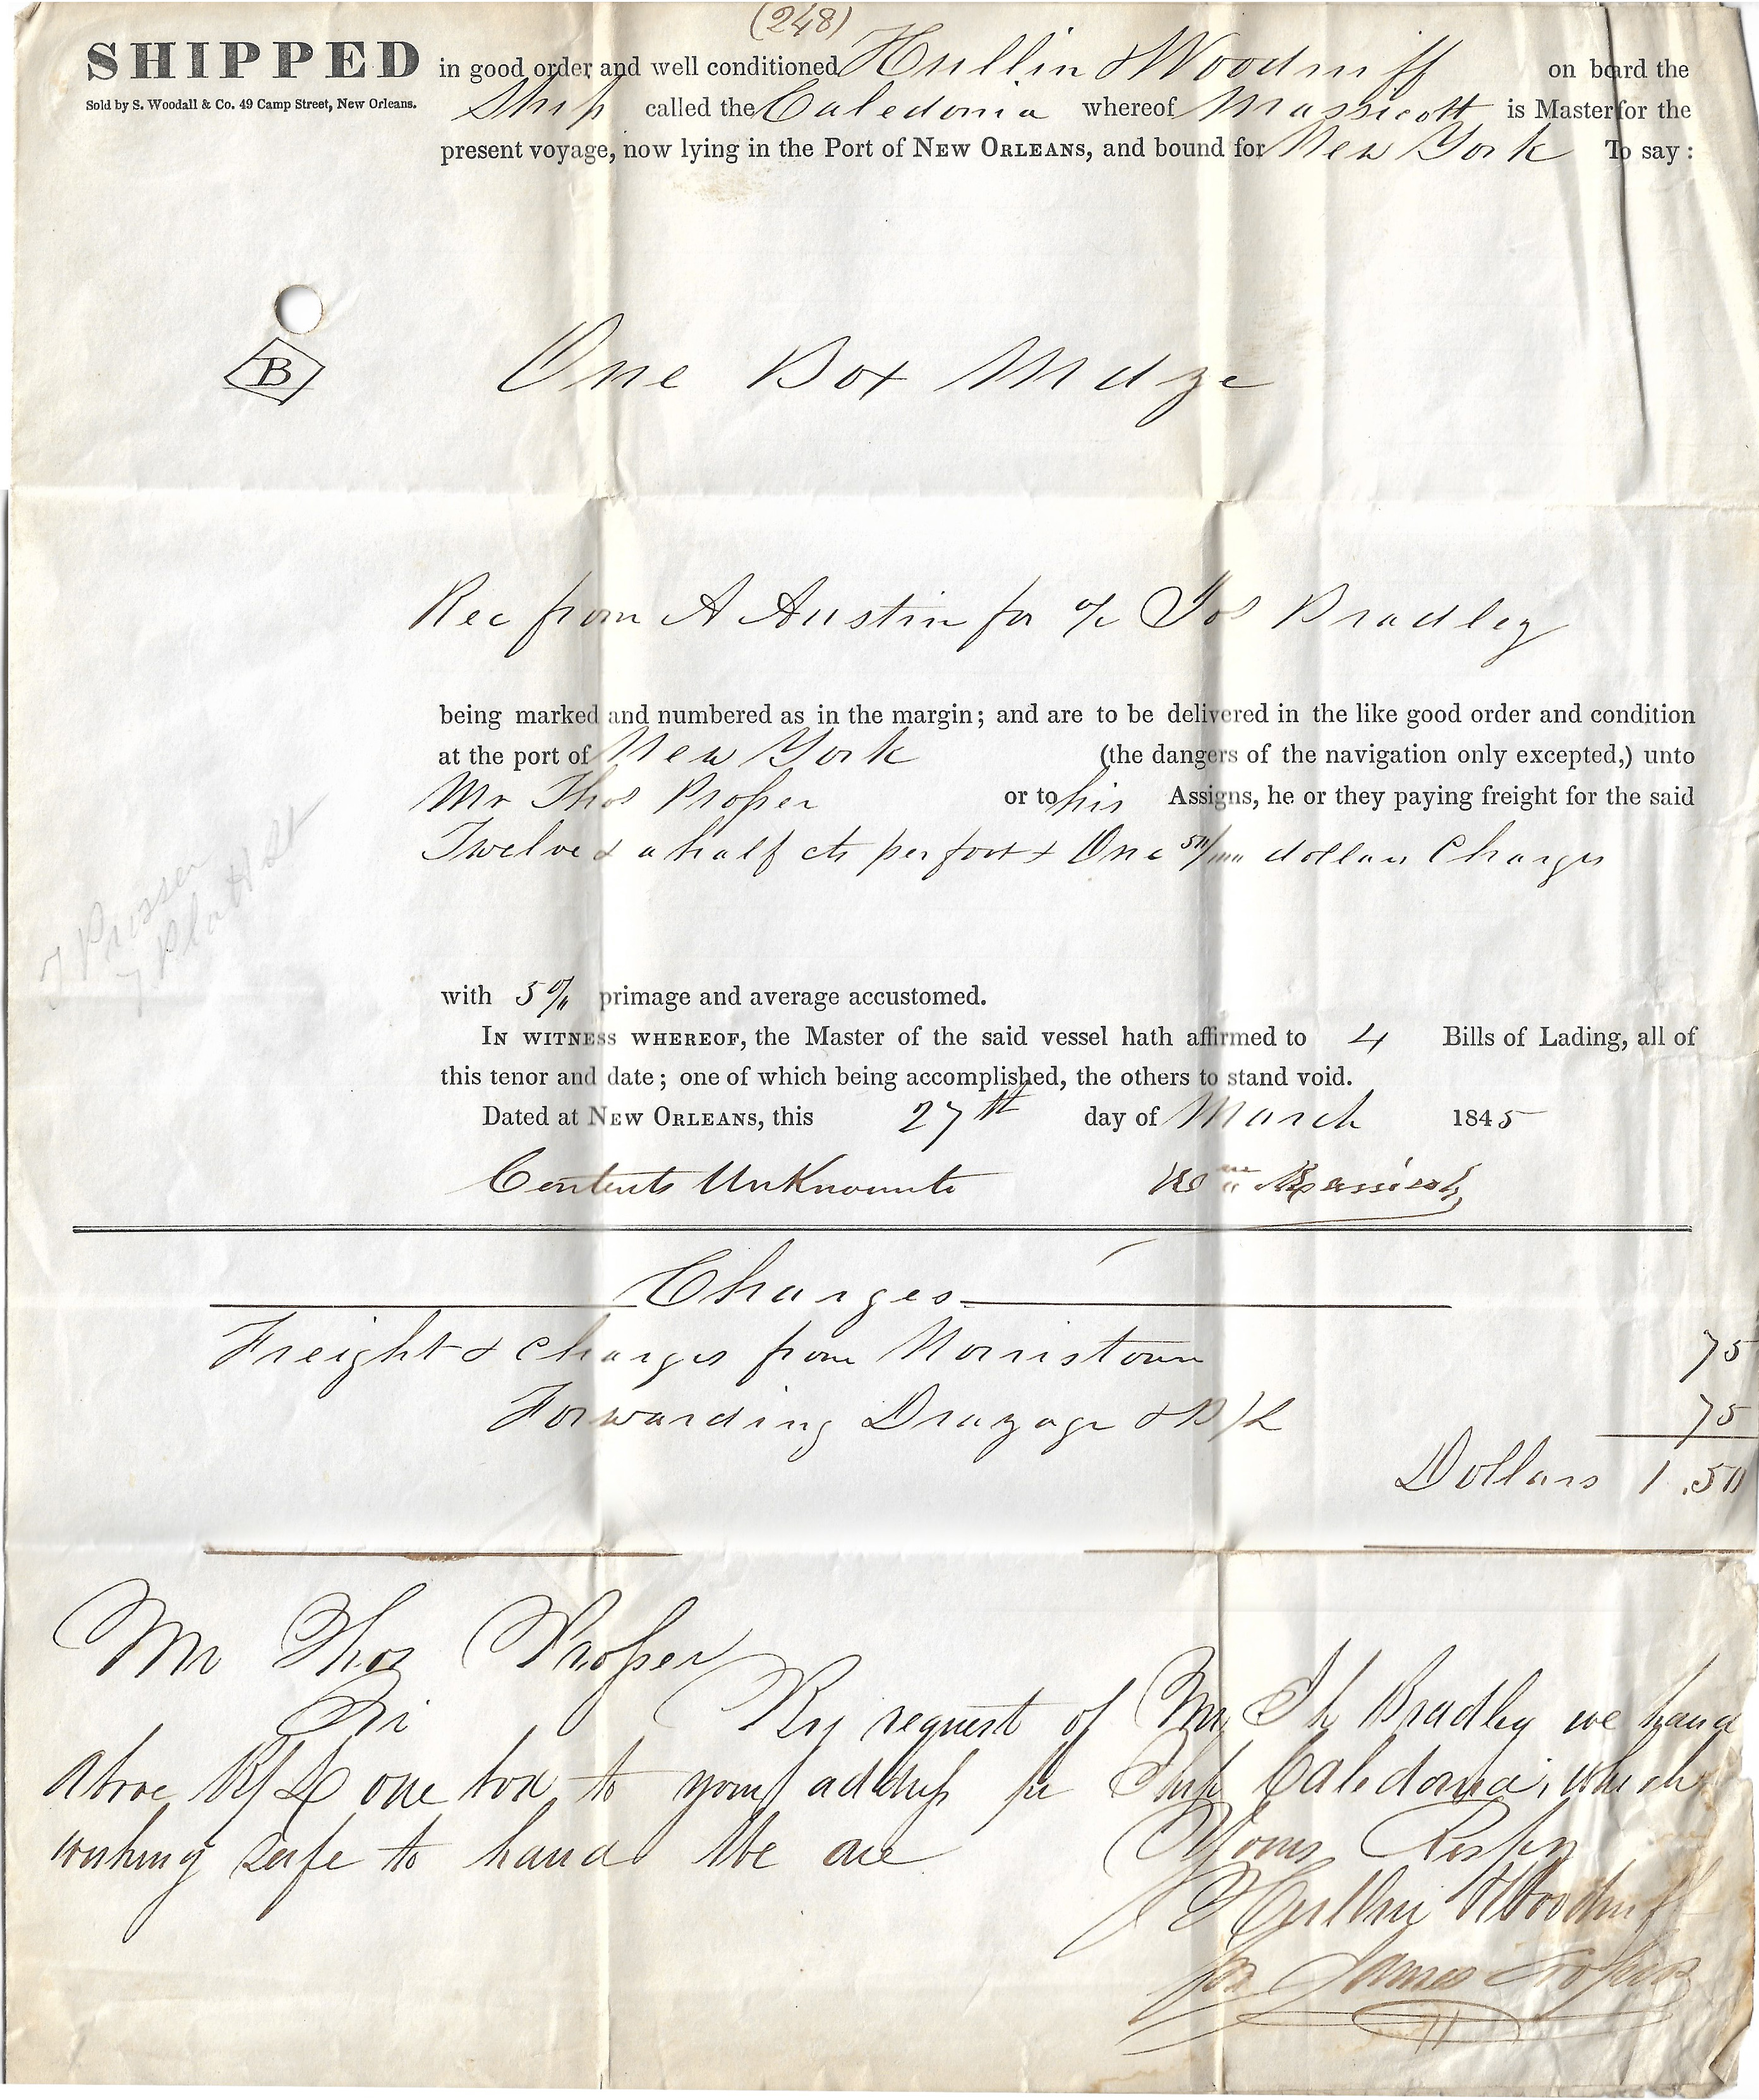 (248)
SHIPPED in good order and well conditioned Hullin & Woodruff on board the
Sold by S. Woodall & Co. 49 Camp Street, New Orleans.
Ship called the Caledonia whereof Massicott is Master for the
present voyage, now lying in the Port of NEW ORLEANS, and bound for New York To say :
B One Box Mdze
Rec from A Austin for a/c Jos Bradley
being marked and numbered as in the margin; and are to be delivered in the like good order and condition
at the port of New York (the dangers of the navigation only excepted,) unto
Mr Thos Prosser or to his Assigns, he or they paying freight for the said
Twelve & a half cts per foot & One 50/100 dollars Charges
7 Platt St
with 5% primage and average accustomed.
IN WITNESS WHEREOF, the Master of the said vessel hath affirmed to 4 Bills of Lading, all of
this tenor and date; one of which being accomplished, the others to stand void.
Dated at NEW ORLEANS, this 27th day of March 1845
Contents Unknown to Wm Massicott
Charges
Freight & charges from Norristown 75
Forwarding Drayage & B/L 75
Dollars 1.50
Mr Thos Prosser
Sir By request of Mr Bradley we hand
above B/L one box to your address pr Ship Caledonia, which
wishing safe to hand We are
Yours Resply
Hullin & Woodruff
pr James